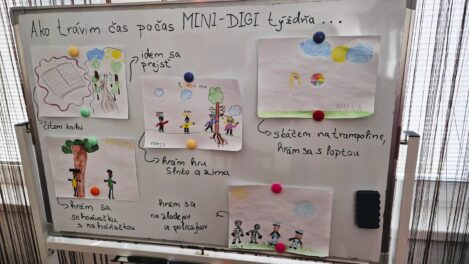 Ako trávim čas počas MINI-DIGI týždňa ...
idem sa
prejsť
čítam knihu
hrám hru
Slnko a zima
skáčem na trampolíne,
hrám sa s loptou
hrám sa
so naháňačku
hrám sa
na zlodejov
a policajtov